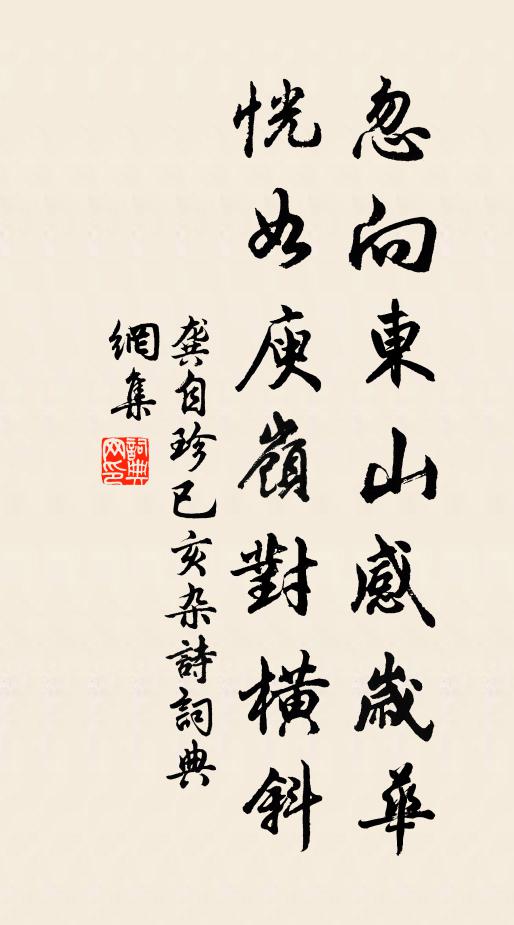 忽向東山感歲華
恍如庾嶺對橫斜
龔自珍己亥杂詩詞典
網集
詞典网印